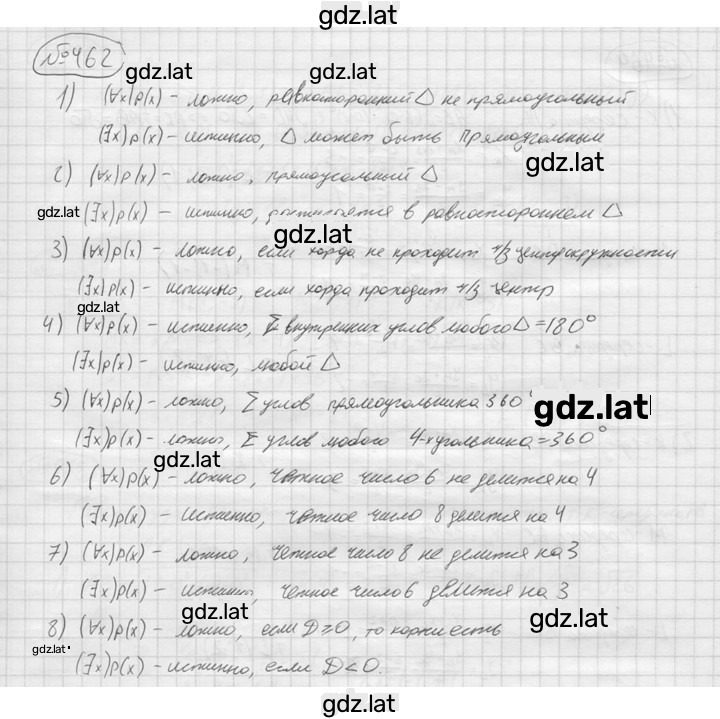 gdz.lat
№462
gdz.lat gdz.lat
1) (∀x)p(x) - ложно, равносторонний △ не прямоугольный
(∃x)p(x) - истинно, △ может быть прямоугольным
gdz.lat
2) (∀x)p(x) - ложно, прямоугольный △
gdz.lat (∃x)p(x) - истинно, в равностороннем △
gdz.lat
3) (∀x)p(x) - ложно, если хорда не проходит ч/з центр окружности
(∃x)p(x) - истинно, если хорда проходит ч/з центр
gdz.lat
4) (∀x)p(x) - истинно, Σ внутренних углов любого △ = 180°
(∃x)p(x) - истинно, любой △
5) (∀x)p(x) - ложно, Σ углов прямоугольника 360°
gdz.lat
(∃x)p(x) - ложно, Σ углов любого 4-х угольника = 360°
gdz.lat
6) (∀x)p(x) - ложно, четное число 6 не делится на 4
(∃x)p(x) - истинно, четное число 8 делится на 4
7) (∀x)p(x) - ложно, четное число 8 не делится на 3
(∃x)p(x) - истинно, четное число 6 делится на 3
gdz.lat gdz.lat
8) (∀x)p(x) - ложно, если D≥0, то корни есть
gdz.lat
(∃x)p(x) - истинно, если D<0.
gdz.lat